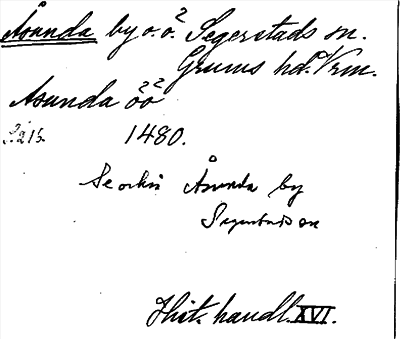 Åsunda by o. ö.² Segerstads sn.
Grums hd. Vrm.
Asunda öö²²
S. 215. 1480.
Se också Åsunda by
Segerstads sn
Hist. handl. XVI.